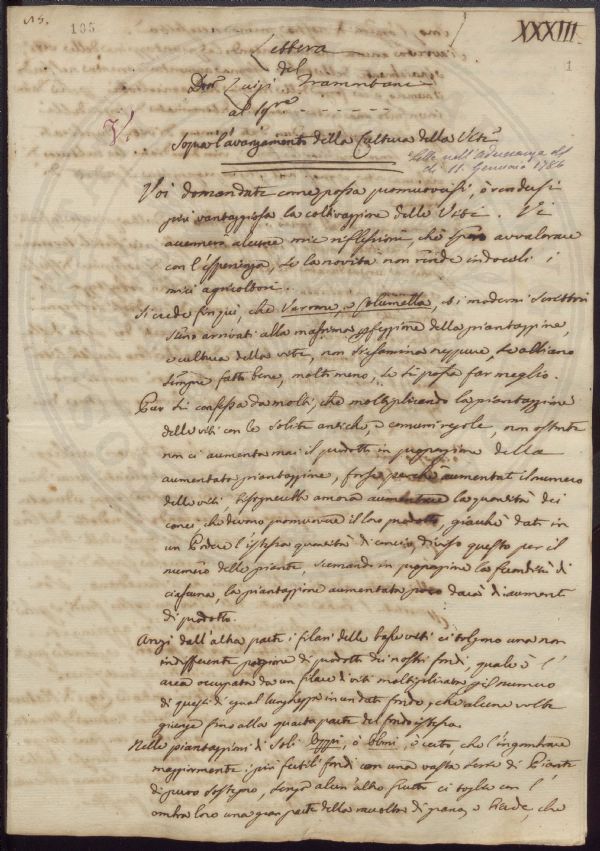 15.
135
XXXIII
1
Lettera
del
Dott. Luigi Tramontani
al Sig.re - - - - - -
V.
Sopra l'avanzamento della Cultura della Vite
Letta nell'adunanza del
dì 11. Gennaio 1786
Voi domandate come possa promuoversi, o rendersi
più vantaggiosa la coltivazione delle Viti. Vi
accennerò alcune mie riflessioni, che spero avvalorare
con l'esperienza, se la novità non rende indocili i
miei agricoltori.
Si crede fin qui, che Varrone, e Columella, e i moderni Scrittori
siano arrivati alla massima perfezione della piantazione,
e cultura della vite, non si esamina neppure, se abbiano
sempre fatto bene, molto meno, se si possa far meglio.
Pur si confessa da molti, che moltiplicando la piantazione
delle viti con le solite antiche, e comuni regole, non ostante
non ci aumenta mai il prodotto in proporzione della
aumentata piantazione, forse perchè aumentato il numero
delle viti, bisognerebbe ancora aumentare la quantità dei
conci, che devono promuovere il loro prodotto, giacchè dato in
un Podere l'istessa quantità di concio, diviso questo per il
numero delle piante, scemando in proporzione la fecondità di
ciascuna, la piantazione aumentata poco darà di aumento
di prodotto.
Anzi dall'altra parte i filari delle basse viti ci tolgono una non
indifferente porzione di prodotto dei nostri fondi, quale è l'
area occupata da un filare di viti moltiplicata per il numero
di questi di egual lunghezza in un dato fondo, che alcune volte
giunge fino alla quarta parte del fondo istesso.
Nelle piantazioni di soli Pioppi, o Olmi, è certo, che l'ingombrare
maggiormente i più fertili fondi con una vasta serie di Piante
di puro sostegno, senza alcun'altro frutto ci toglie con l'
ombra loro una gran parte della raccolta di grano, e biade, che